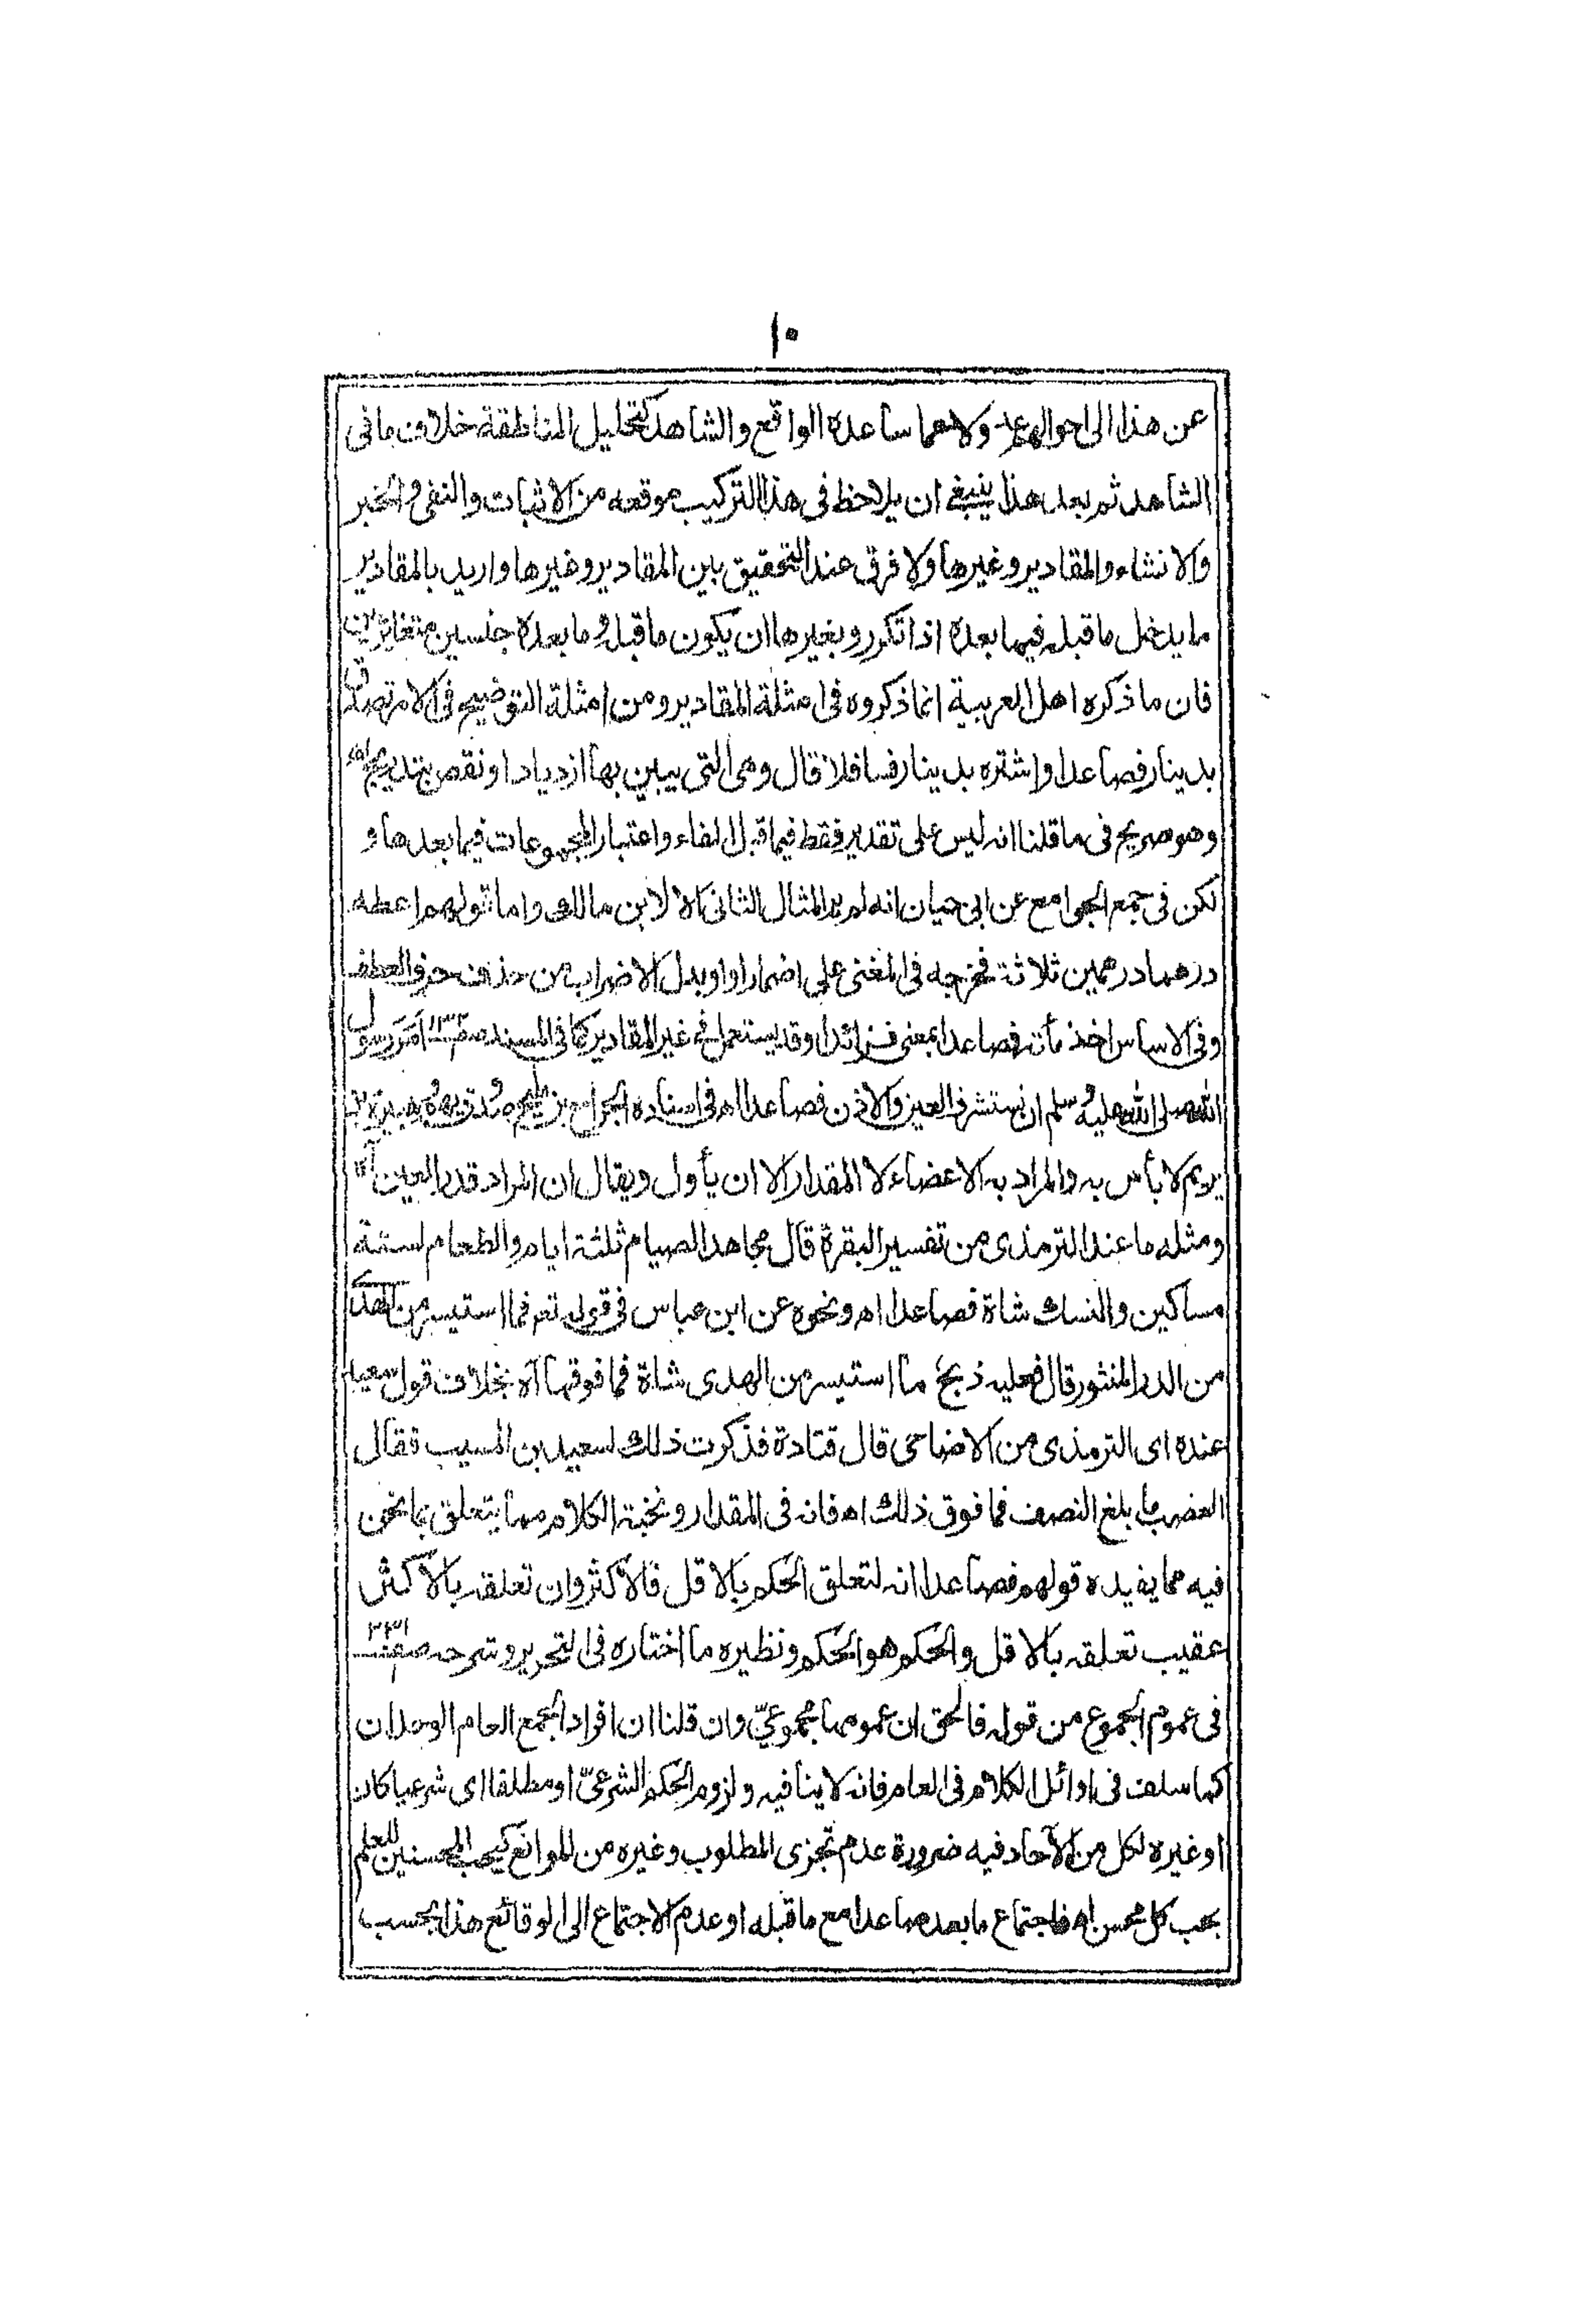 ١٠
عن هذا الى احوالهم ولا مما ساعده الواقع والشاهد كتحليل المناطقة خلاف ما فى
الشاهد ثم بعد هذا ينبغى ان يلاحظ فى هذا التركيب موقعه من الاثبات والنفى والخبر
والانشاء والمقادير وغيرها ولا فرق عند التحقيق بين المقادير وغيرها واريد بالمقادير
ما يدخل ما قبله فيما بعده اذا تكرر وبغيرها ان يكون ما قبله وما بعده جنسين متغائرين
فان ما ذكره اهل العربية انما ذكروه فى امثلة المقادير ومن امثلة التوضيح فى الامر تصدق
بدينار فصاعدا واشتره بدينار فسافلا قال وهى التى يبين بها ازدياد او نقص بتدريج اه
وهو صريح فى ما قلنا انه ليس على تقدير فقط فيما قبل الفاء واعتبار المجموعات فيما بعدها و
لكن فى جمع الجوامع عن ابى حيان انه لم ير المثال الثانى الا لابن مالك واما قولهم اعطه
درهما درهمين ثلاثة فخرجه فى المغنى على اضمار او او بدل الاضراب من حذف حرف العطف
وفى الاساس اخذ مأته فصاعدا بمعنى فزائدا وقد يستعمل فى غير المقادير كما فى المسند صفحه ١٣٢ امر رسول
الله صلى الله عليه وسلم ان نستشرف العين والاذن فصاعدا اه فى اسناده الجراح بن مليح صدوق يهم وهبيرة بن
يريم لا بأس به والمراد به الاعضاء لا المقدار الا ان يأول ويقال ان المراد قدر العين اه
ومثله ما عند الترمذى من تفسير البقرة قال مجاهد الصيام ثلثة ايام والطعام لستة
مساكين والنسك شاة فصاعدا اه ونحوه عن ابن عباس فى قوله تعـ فما استيسر من الهدى
من الدر المنثور قال فعليه ذبح ما استيسر من الهدى شاة فما فوقها اه بخلاف قول سعيد
عنده اى الترمذى من الاضاحى قال قتادة فذكرت ذلك لسعيد بن المسيب فقال
العضب ما بلغ النصف فما فوق ذلك اه فانه فى المقدار ونخبة الكلام مما يتعلق بما نحن
فيه مما يفيده قولهم فصاعدا انه لتعلق الحكم بالاقل فالاكثر وان تعلقه بالاكثر
عقيب تعلقه بالاقل والحكم هو الحكم ونظيره ما اختاره فى التحرير وشرحه صفحه
فى عموم الجموع من قوله فالحق ان عمومها مجموعىّ وان قلنا ان افراد الجمع العام الوحدان
كما سلف فى اوائل الكلام فى العام فانه لا ينافيه ولزوم الحكم الشرعىّ او مطلقا اى شرعيا كان
او غيره لكل من الآحاد فيه ضرورة عدم تجزى المطلوب وغيره من الموانع كيحب المحسنين للعلم
بحب كل محسن اه فاجتماع ما بعد صاعدا مع ما قبله او عدم الاجتماع الى الوقائع هذا بحسب